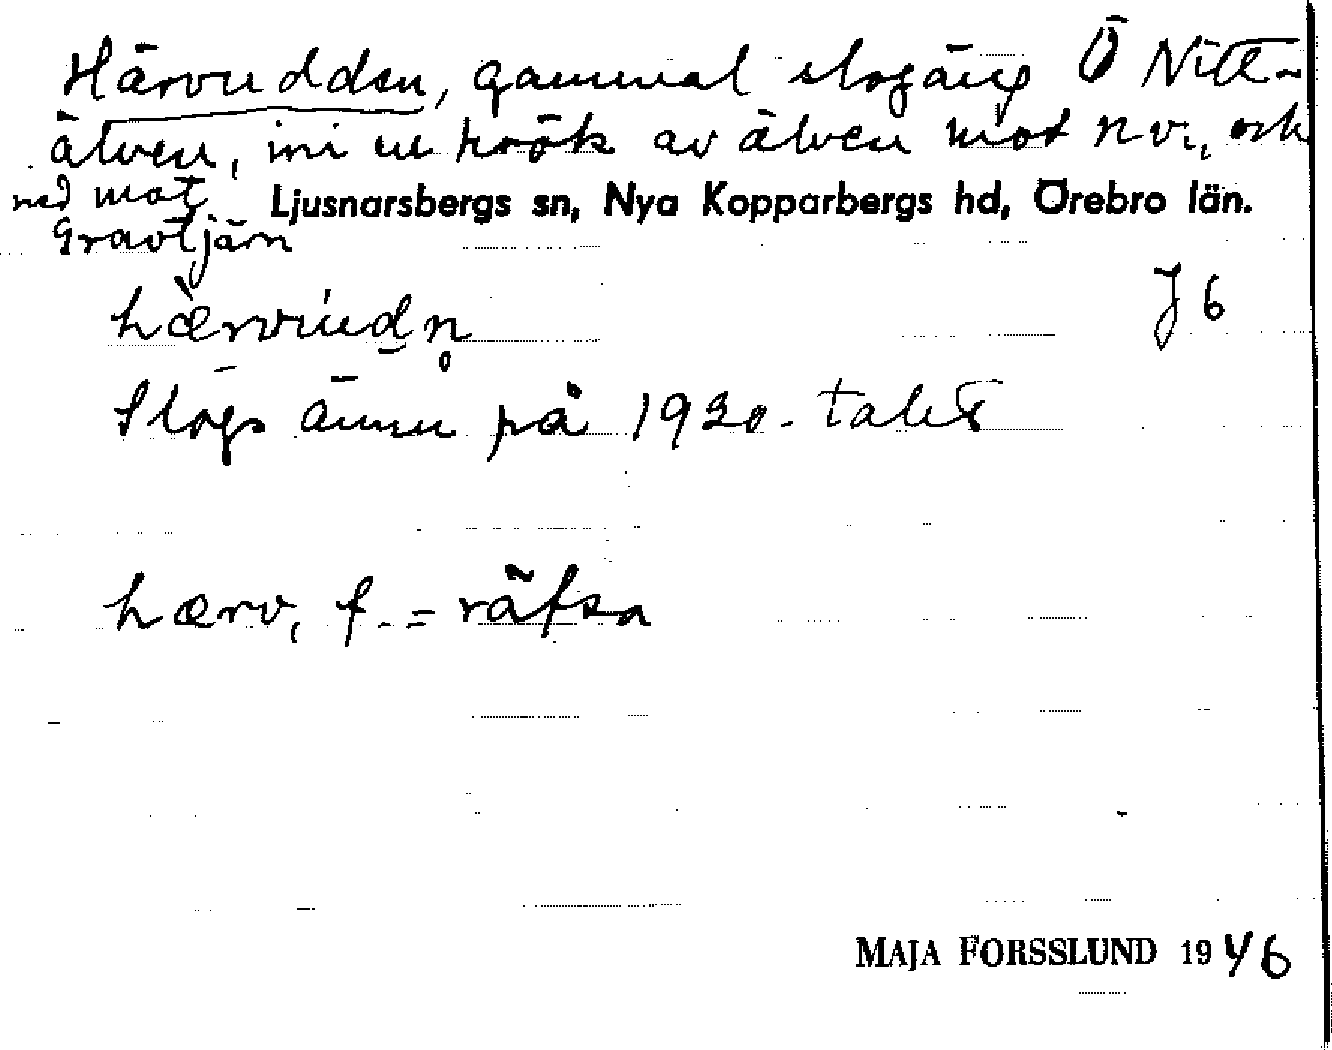 Härvudden, gammal slogäng Ö Nitt-
älven, ini en krök av älven mot nv., och
ned mot Ljusnarsbergs sn, Nya Kopparbergs hd, Örebro län.
Gravtjärn
hærvúdn̥
J 6
Slogs ännu på 1930-talet
hærv, f. = räfsa
MAJA FORSSLUND 1946